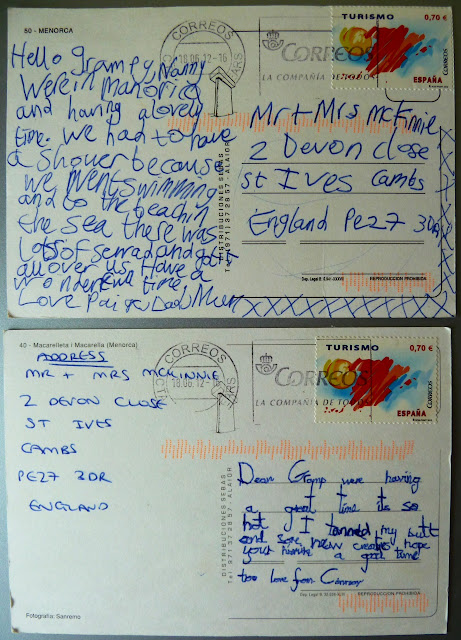 50 - MENORCA
CORREOS
18.06.12-16
CORREOS
LA COMPAÑÍA DE TODOS
TURISMO 0,70 €
CORREOS
ESPAÑA
Hello Grampy, Nanny
Were in manorica
and having a lovely
time. we had to have
a shower because
we went swimming
and to the beach in
the sea there was
Lots of and
all over us Have a
time
Love Dad Mum
Mr + Mrs McKinnie
2 Devon close
St Ives Cambs
England Pe27 3DR
DISTRIBUCIONES SEBAS
Tel. (971) 37 28 57 - ALAIOR
REPRODUCCIÓN PROHIBIDA
XXXXXXXX
40 - Macarelleta i Macarella (Menorca)
CORREOS
18.06.12-16
CORREOS
LA COMPAÑÍA DE TODOS
TURISMO 0,70 €
CORREOS
ESPAÑA
ADDRESS
MR + MRS MCKINNIE
2 DEVON CLOSE
ST IVES
CAMBS
PE27 3DR
ENGLAND
DISTRIBUCIONES SEBAS
Tel. 971 37 28 57 - ALAIOR
Dear Gramp were having
a great time its so
hot I tanned my butt
and hope
your a good time
too love from
REPRODUCCIÓN PROHIBIDA
Fotografía: Sanremo